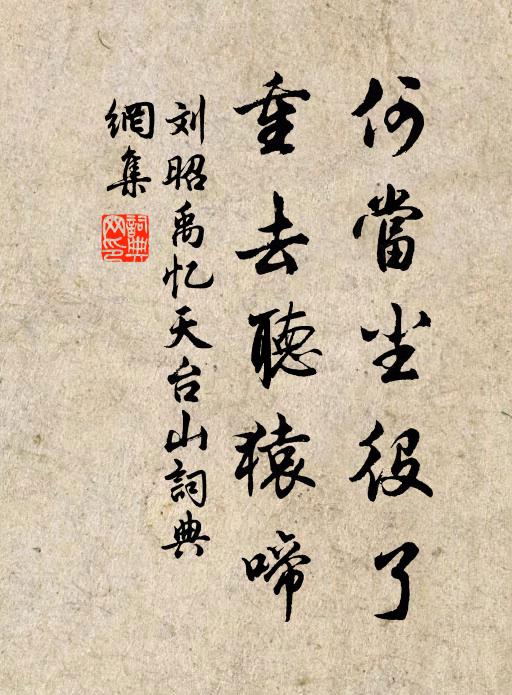 何當尘役了
重去聽猿啼
刘昭禹忆天台山詞典
網集
詞典
网印